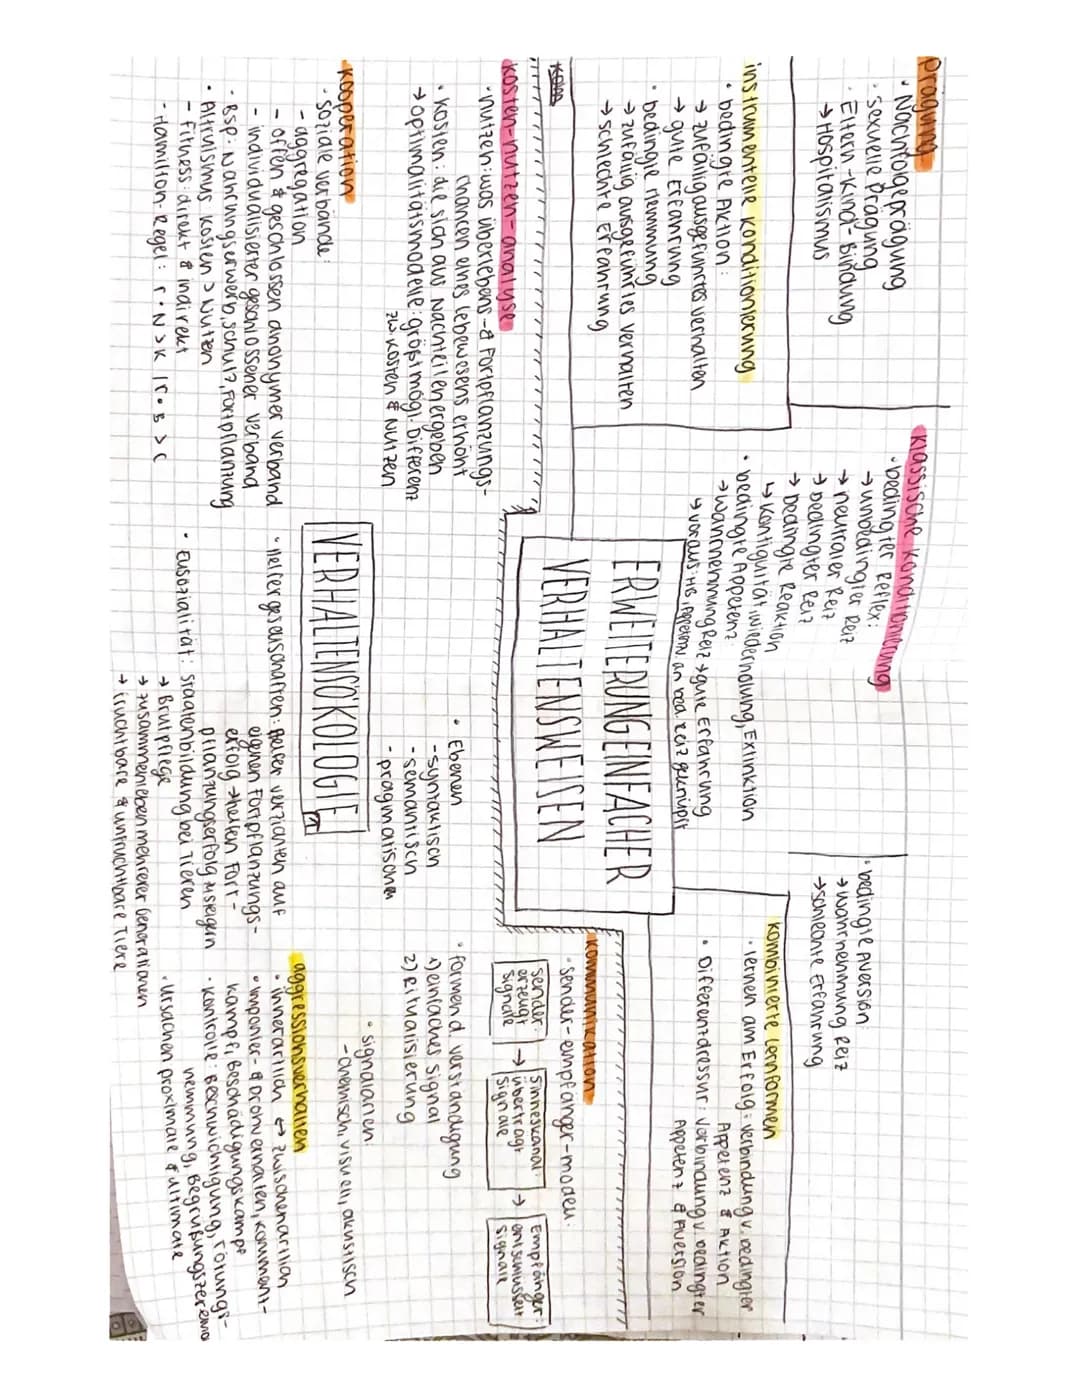 Prägung
· Nachfolgeprägung
· sexuelle Prägung
· Eltern-Kind-Bindung
→ Hospitalismus
klassische Konditionierung
· bedingter Reflex:
→ unbedingter Reiz
→ neutraler Reiz
→ bedingter Reiz
→ bedingte Reaktion
↳ Kontiguität, Wiederholung, Extinktion
· bedingte Appetenz:
→ Wahrnehmung Reiz + gute Erfahrung
↳ voraus: HB, Appetenz an bed. Reiz geknüpft
· bedingte Aversion:
→ Wahrnehmung Reiz
→ schlechte Erfahrung
instrumentelle Konditionierung
· bedingte Aktion:
→ zufällig ausgeführtes Verhalten
→ gute Erfahrung
· bedingte Hemmung
→ zufällig ausgeführtes Verhalten
→ schlechte Erfahrung
kombinierte Lernformen
· lernen am Erfolg: Verbindung v. bedingter
Appetenz & Aktion
· Differenzdressur: Verbindung v. bedingter
Appetenz & Aversion
ERWEITERUNG EINFACHER
VERHALTENSWEISEN
Kosten-Nutzen-Analyse
· Nutzen: was Überlebens- & Fortpflanzungs-
chancen eines Lebewesens erhöht
· Kosten: die sich aus Nachteilen ergeben
→ Optimalitätsmodelle: größtmögl. Differenz
zw. Kosten & Nutzen
Kommunikation
· Sender-Empfänger-Modell:
Sender:
erzeugt
Signale
→
Sinneskanal:
überträgt
Signale
→
Empfänger:
entschlüsselt
Signale
· Ebenen
- syntaktisch
- semantisch
- pragmatischen
· formend. Verständigung
1) einfaches Signal
2) Ritualisierung
· Signalarten:
- chemisch, visuell, akustisch
VERHALTENSÖKOLOGIE
Kooperation
· Soziale Verbände:
- Aggregation
- offen & geschlossen anonymer Verband
- individualisierter geschlossener Verband
· Bsp: Nahrungserwerb, Schutz, Fortpflanzung
· Altruismus Kosten > Nutzen
- Fitness: direkt & indirekt
- Hamilton-Regel: r · N > K | r · B > C
· Helfergesellschaften: Helfer verzichten auf
eigenen Fortpflanzungs-
erfolg → helfen Fort-
pflanzungserfolg zu steigern
· Eusozialität: Staatenbildung bei Tieren
→ Brutpflege
→ Zusammenleben mehrerer Generationen
→ fruchtbare & unfruchtbare Tiere
Aggressionsverhalten
· innerartlich ↔ zwischenartlich
· Imponier- & Drohverhalten, Komment-
kampf, Beschädigungskampf
· Kontrolle: Beschwichtigung, Tötungs-
hemmung, Begrüßungszeremo
· Ursachen proximate & ultimate